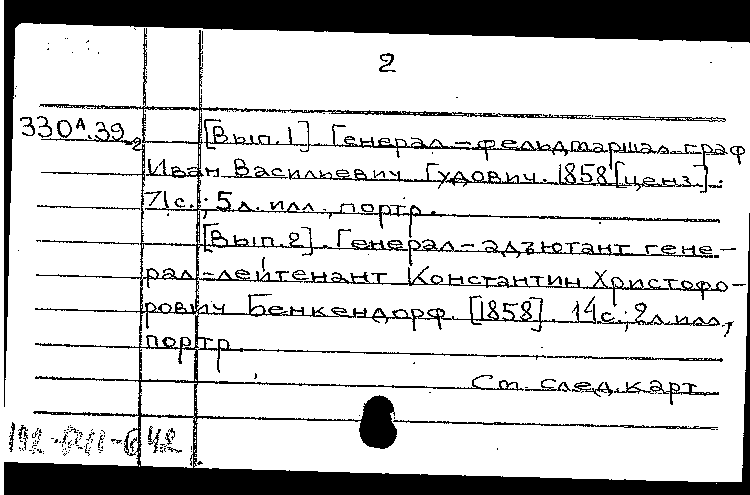 2
330А.39-2 [Вып.1]. Генерал-фельдмаршал граф
Иван Васильевич Гудович. 1858 [ценз.].
71с.; 5 л. илл., портр.
[Вып.2]. Генерал-адъютант гене-
рал-лейтенант Константин Христофо-
рович Бенкендорф. [1858]. 14с.; 2л. илл,
портр.
См. след. карт
42